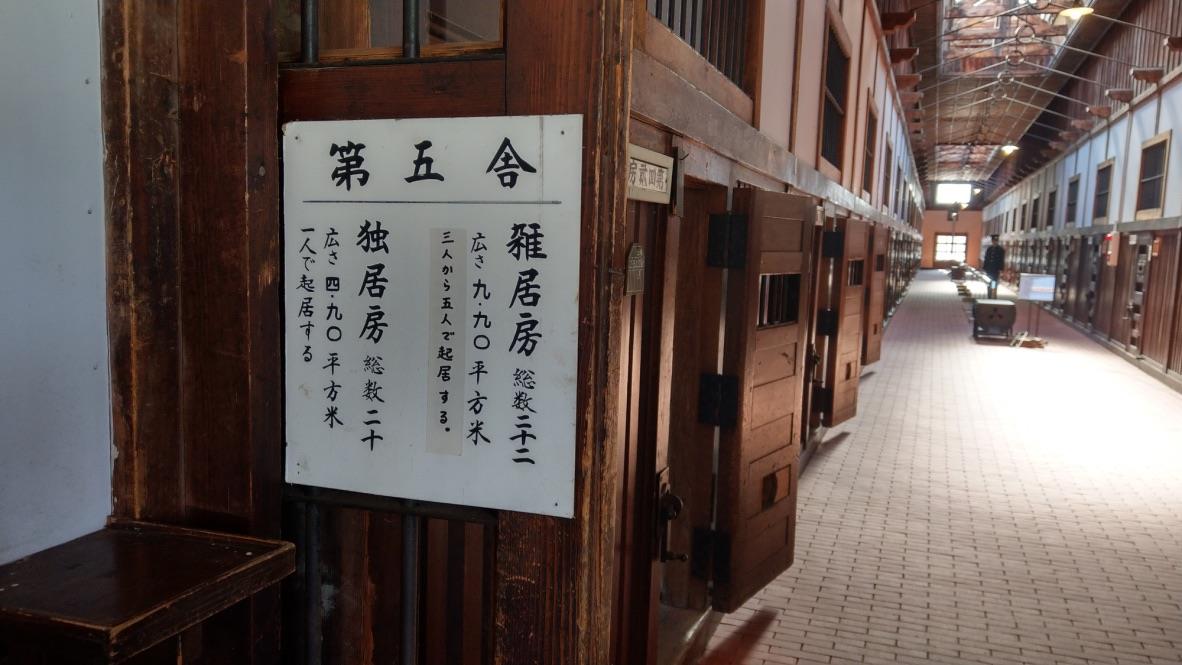 第五舎
雑居房 総数二十二
広さ 九・九〇 平方米
三人から五人で起居する。
独居房 総数二十
広さ 四・九〇 平方米
一人で起居する